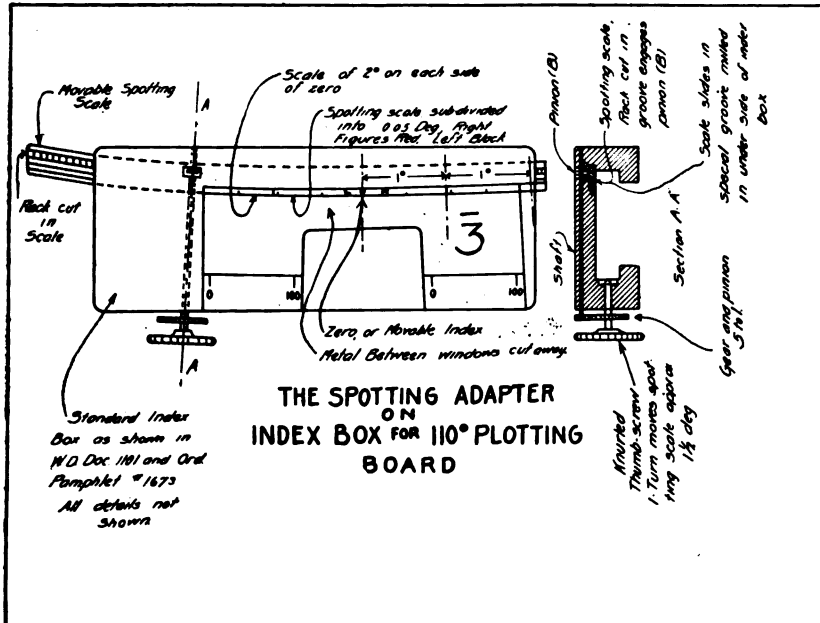 Movable Spotting
Scale
A
Scale of 2° on each side
of zero
Spotting scale subdivided
into 0.05 Deg. Right
Figures Red. Left Black
Rack cut
in
Scale
1°
1°
3
0
100
0
100
A
Zero, or Movable Index
Metal Between windows cut away.
Standard Index
Box as shown in
W.D. Doc. 1101 and Ord.
Pamphlet #1673
All details not
shown.
THE SPOTTING ADAPTER
ON
INDEX BOX FOR 110° PLOTTING
BOARD
Pinion (B)
Spotting scale,
Rack cut in
groove engages
pinion (B)
Scale slides in
special groove milled
in under side of index
box
Shaft
Section A.A
Gear and pinion
5 to 1.
Knurled
Thumb-screw
1-Turn moves spot
ting scale approx
1½ deg